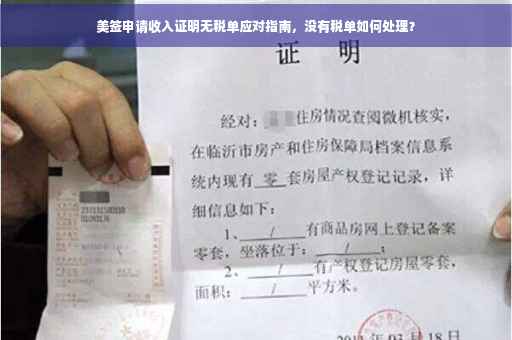 美签申请收入证明无税单应对指南，没有税单如何处理？
证 明
经对：住房情况查阅微机核实，
在临沂市房产和住房保障局档案信息系
统内现有 零 套房屋产权登记记录，详
细信息如下：
1、 / 有商品房网上登记备案
零套，坐落位于： / ；
2、 / 有产权登记房屋零套，
面积： / 平方米。
03月18日